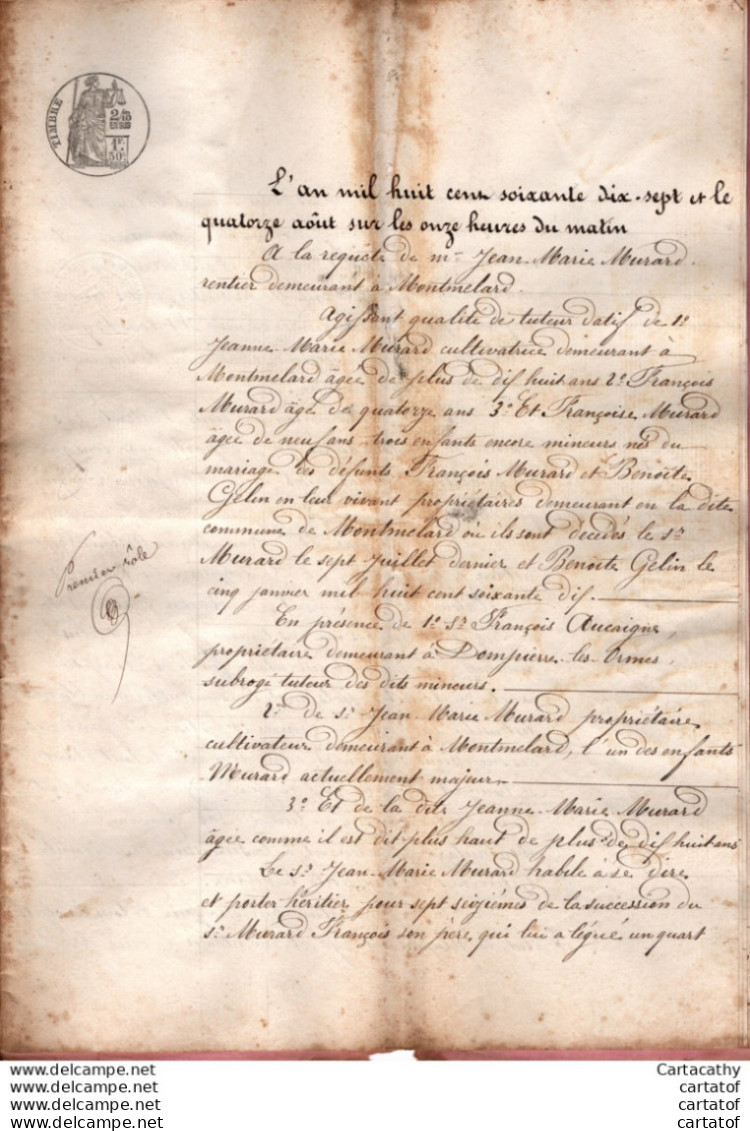 TIMBRE
2/10
EN SUS
1F.
50c.
L'an mil huit cent soixante dix-sept et le
quatorze août sur les onze heures du matin
A la requête de mr Jean Marie Murard
rentier demeurant à Montmelard.
Agissant qualité de tuteur datif de 1º
Jeanne Marie Murard cultivatrice demeurant à
Montmelard âgée de plus de dix huit ans 2º François
Murard âgé de quatorze ans 3º Et Françoise Murard
âgée de neuf ans trois enfants encore mineurs nés du
mariage des défunts François Murard et Benoîte
Gelin en leur vivant propriétaires demeurant en la dite
commune de Montmelard où ils sont décédés le sr
Murard le sept Juillet dernier et Benoîte Gelin le
cinq janvier mil huit cent soixante dix.
Premier rôle
En présence de 1º sr François Aucaigne,
propriétaire demeurant à Dompierre-les-Ormes,
subrogé tuteur des dits mineurs.
2º de sr Jean Marie Murard propriétaire
cultivateur demeurant à Montmelard, l'un des enfants
Murard actuellement majeur
3º Et de la dite Jeanne Marie Murard
âgée comme il est dit plus haut de plus de dix huit ans
Le sr Jean Marie Murard habile à se dire
et porter héritier pour sept seizièmes de la succession du
sr Murard François son père, qui lui a légué un quart
www.delcampe.net
role
cartatof
cartatof
Cartacathy
cartatof
cartatof
cartatof